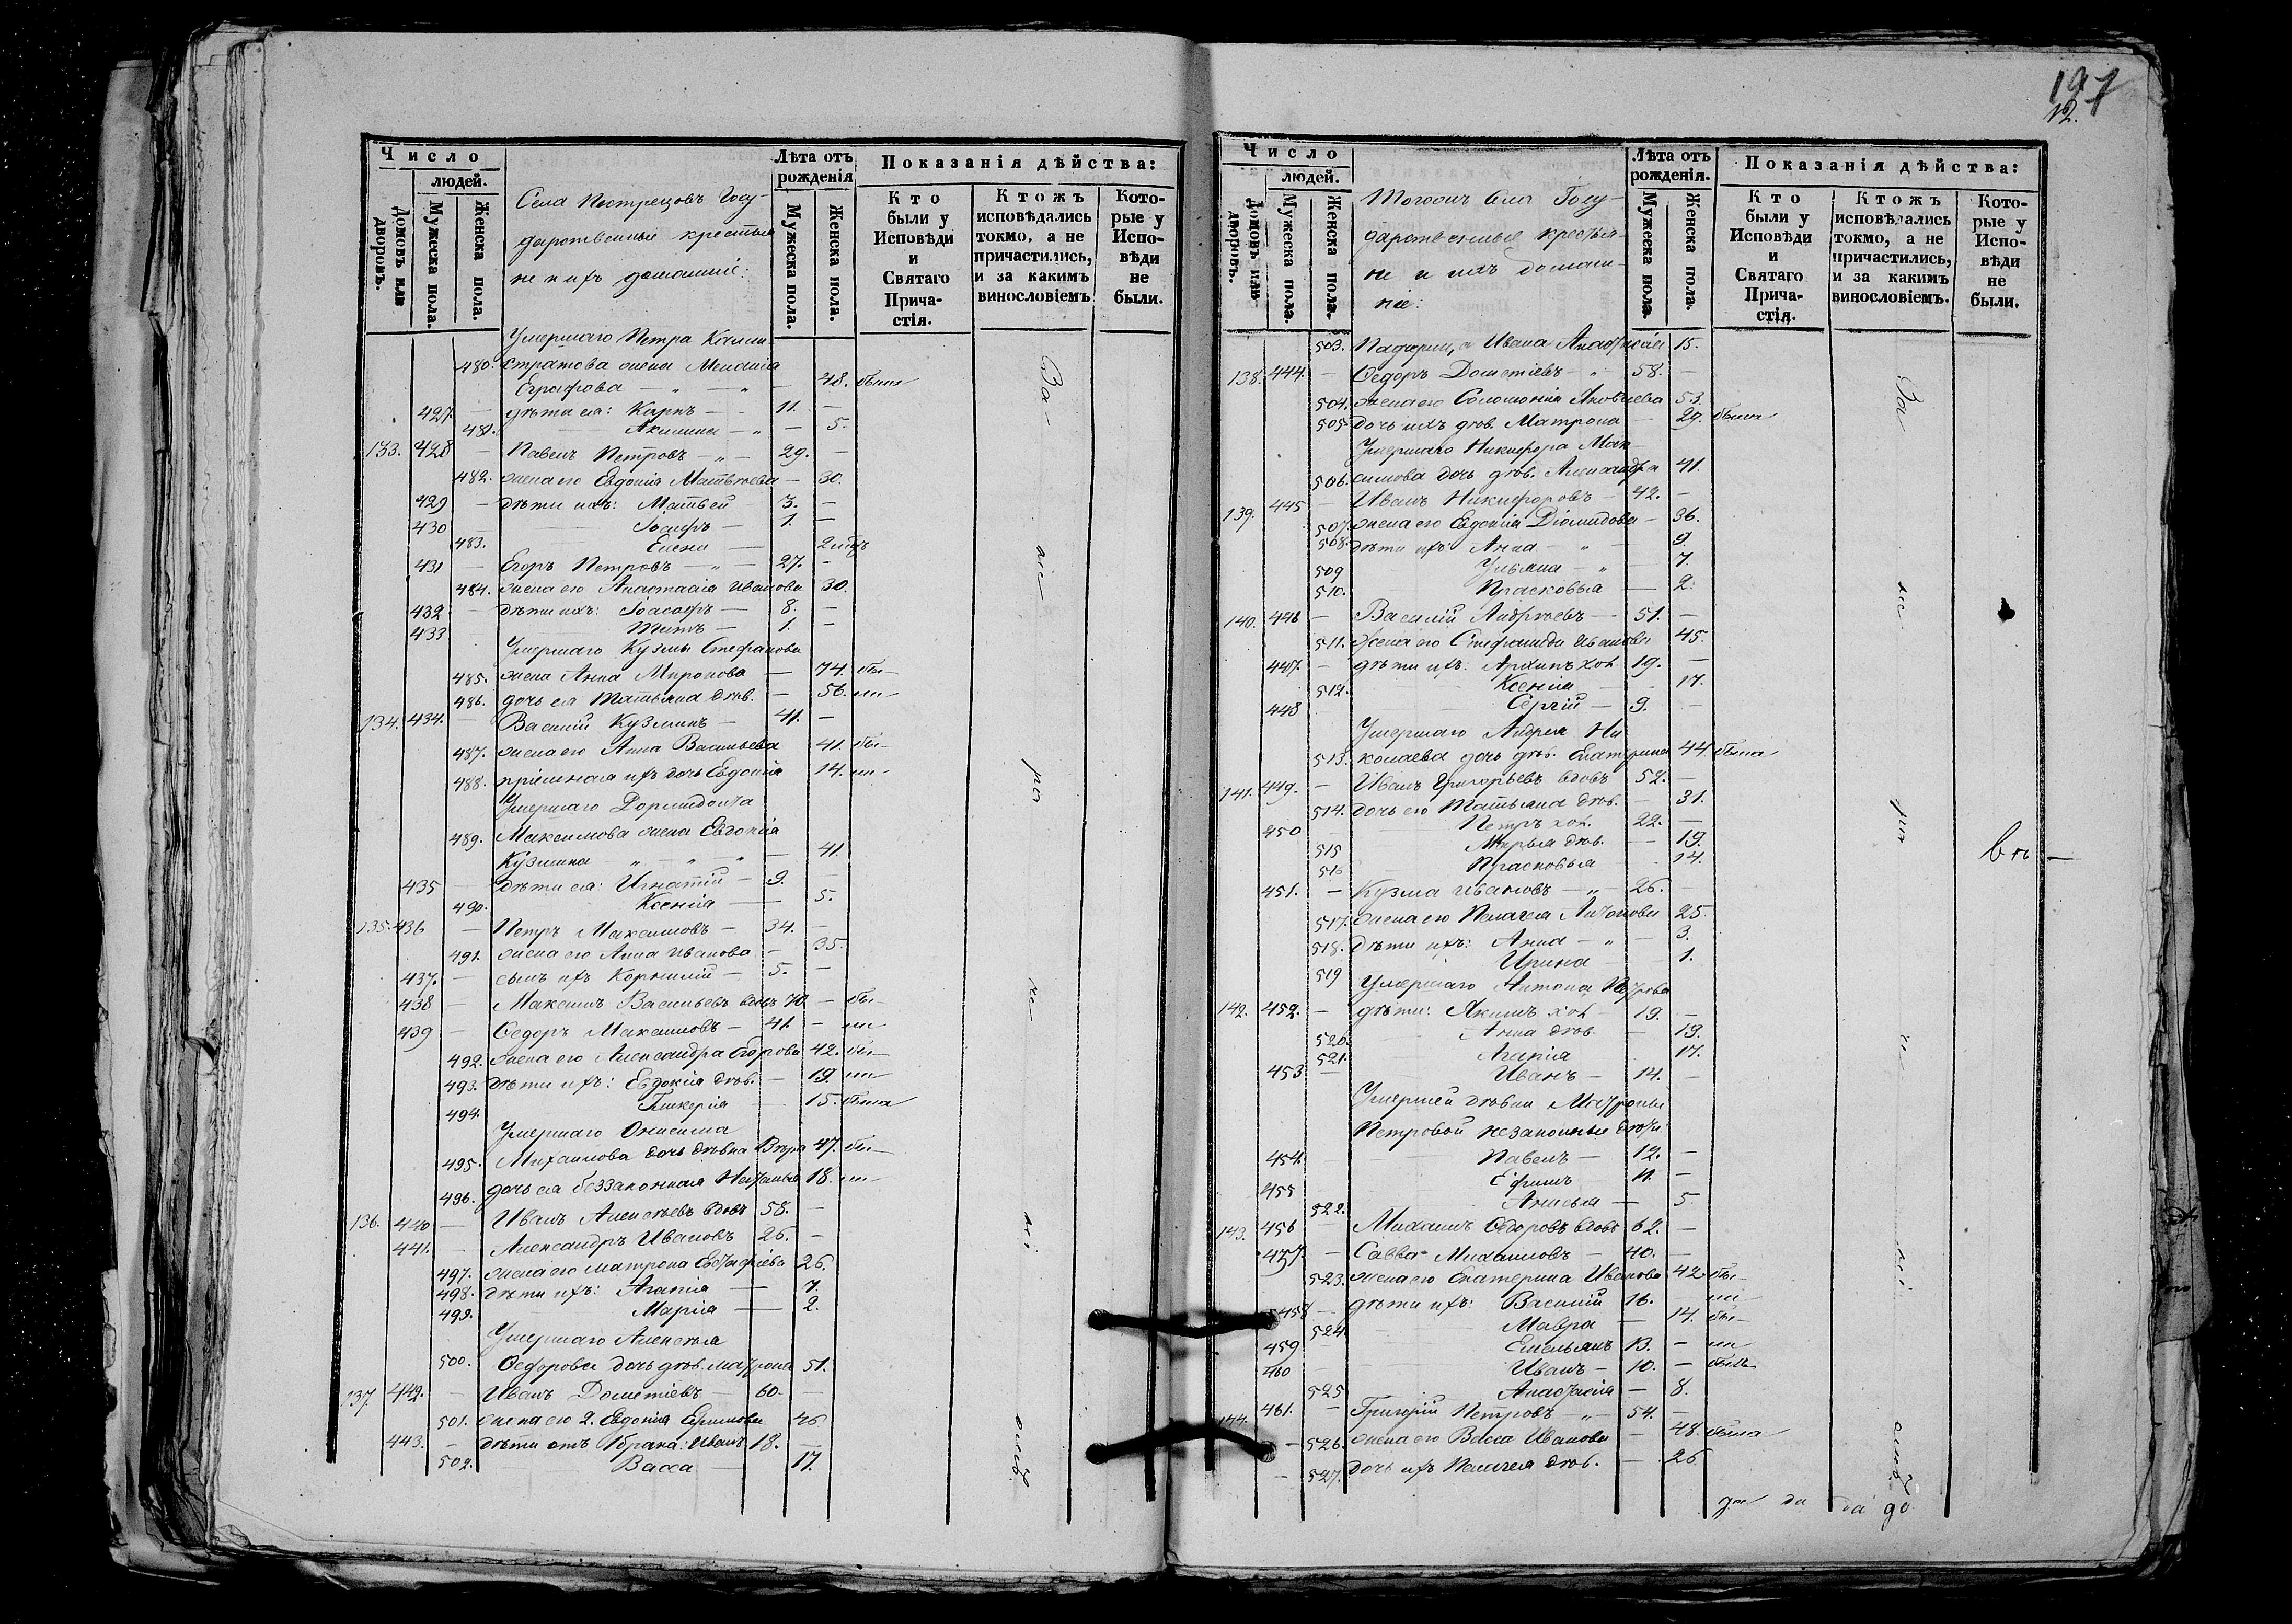 197
12.
Число
людей.
Домовъ или дворовъ.
Мужеска пола.
Женска пола.
Села Пестрецовъ Госу-
дарственные крестья
не и ихъ домашніе:
Лѣта отъ рожденія
Мужеска пола.
Женска пола.
Показанія дѣйства:
Кто были у Исповѣди и Святаго Прича-стія.
Ктожъ исповѣдались токмо, а не причастились, и за какимъ винословіемъ
Кото-рые у Испо-вѣди не были.
Умершаго Петра Калли
480. стратова жена Меланія
Еграфова — 48. были
427. — дѣти ея: Карпъ — 11. —
481. Акилина — 5.
133. 428 — Павелъ Петровъ — 29. —
482. жена его Евдокія Матвѣева — 30.
429 — дѣти ихъ: Матвей 3. —
430 Іоасафъ — 1. —
483. Елена — 2
431 — Егоръ Петровъ — 27. —
484. жена его Анастасія Иванова 30.
432 — дѣти ихъ: Іоасафъ — 8. —
433 Титъ — 1. —
Умершаго Кузмы Стефанова
485. жена Анна Миронова — 74. бы-
486. дочь ея Татьяна дѣв. — 56. ли
134. 434. — Василій Кузминъ — 41. —
487. жена его Анна Васильева 41. бы-
488. пріемная ихъ дочь Евдокія 14. ли
Умершаго Дормидонта
489. Максимова жена Евдокія
Кузмина — 41.
435 — дѣти ея: Игнатій — 9. —
490. Ксенія — 5.
135. 436 — Петръ Максимовъ — 34. —
491. жена его Анна Иванова — 35.
437. — сынъ ихъ Корнилій — 5. —
438 — Максимъ Васильевъ вдовъ 70. — бы-
439 — Ѳедоръ Максимовъ — 41. — ли
492. жена его Александра Егорова 42. бы-
493. дѣти ихъ: Евдокія дѣв. — 19. ли
494. Гликерія 15. была
Умершаго Онисима
495. Михаилова дочь дѣвка Вѣра 47. бы-
496. дочь ея беззаконная Наталья 18. ли
136. 440 — Иванъ Алексѣевъ вдовъ 58. —
441. — Александръ Ивановъ 26. —
497. жена его Матрона Евстафіева 26.
498. дѣти ихъ: Агапія — 7.
499. Марія — 2.
Умершаго Алексѣя
500. Ѳедорова дочь дѣв. Матрона 51.
137. 442. — Иванъ Дометіевъ — 60. —
501. жена его 2. Евдокія Ефимова 46
443. — дѣти отъ 1 брака: Иванъ 18. —
502. Васса — 17.
За
не
ра
че
ні
емъ
Число
людей.
Домовъ или дворовъ.
Мужеска пола.
Женска пола.
Тогожъ села Госу-
дарственные крестья-
не и ихъ домаш-
ніе:
Лѣта отъ рожденія.
Мужеска пола.
Женска пола.
Показанія дѣйства:
Кто были у Исповѣди и Святаго Прича-стія.
Ктожъ исповѣдались токмо, а не причастились, и за какимъ винословіемъ.
Кото-рые у Испо-вѣди не были.
503. Ивана Анастасія 15.
138. 444. — Ѳедоръ Дометіевъ — 58. —
504. жена его Соломонія Яковлева 53.
505. дочь ихъ дѣв. Матрона — 29. была
Умершаго Никифора Мак-
506. симова дочь дѣв. Александра 41.
139. 445 — Иванъ Никифоровъ — 42. —
507. жена его Евдокія Діомидова — 36.
508. дѣти ихъ: Анна — 9.
509 Ульяна — 7.
510. Прасковья — 2.
140. 446 — Василій Андреевъ — 51. —
511. жена его Стефанида Иванова 45.
447. — дѣти ихъ: Архипъ хол. 19. —
512. Ксенія 17.
448 Сергій — 9. —
Умершаго Андрея Ни
513. колаева дочь дѣв. Екатерина 44 была
141. 449. — Иванъ Григорьевъ вдовъ 52. —
514. дочь его Татьяна дѣв. — 31.
450 Петръ хол. 22. —
515 Марья дѣв. — 19.
516 Прасковья — 14.
451. — Кузма Ивановъ — 26. —
517. жена его Пелагея Антонова 25.
518. дѣти ихъ: Анна — 3.
519 Ирина 1.
Умершаго Антона Петрова
142. 452. — дѣти: Якимъ хол. 19. —
520. Анна дѣв. — 19.
521. Агапія 17.
453 — Иванъ — 14. —
Умершей дѣвки Матроны
Петровой незаконные дѣти
454. Павелъ — 12. —
455 Ефимъ 11. —
522. Анисья — 5
143. 456 — Михаилъ Ѳедоровъ вдовъ 62. —
457. — Савва Михаиловъ — 40. —
523. жена его Екатерина Иванова 42 бы-
458 — дѣти ихъ: Василій 16. ли
524. Мавра — 14. бы-
459 Емельянъ 13. — ли
460 Иванъ — 10. — былъ
525 Анастасія — 8.
144. 461. — Григорій Петровъ — 54. —
526. жена его Васса Иванова — 48. была
527. дочь ихъ Пелагея дѣв. — 26
За
не
ра
че
ні
емъ